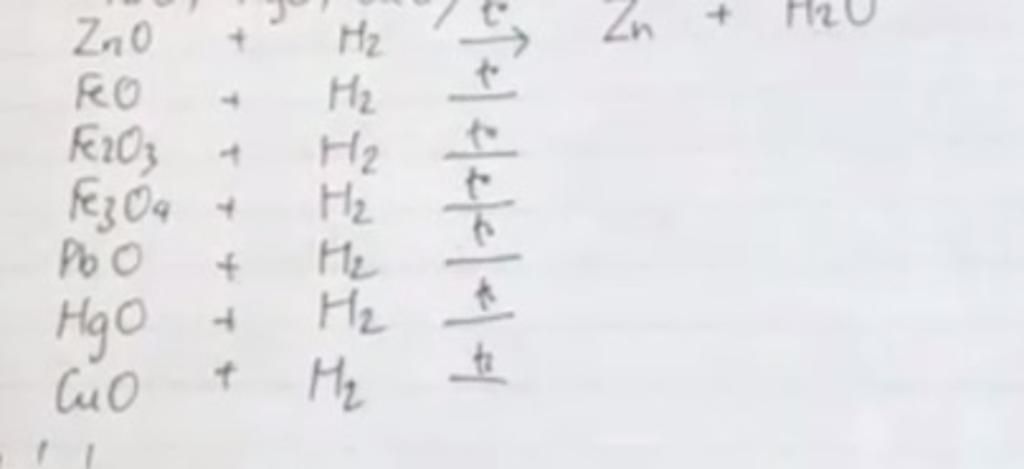 ZnO + H2 t° → Zn + H2O
FeO + H2 t°
Fe2O3 + H2 t°
Fe3O4 + H2 t°
PbO + H2 t°
HgO + H2 t°
CuO + H2 t°